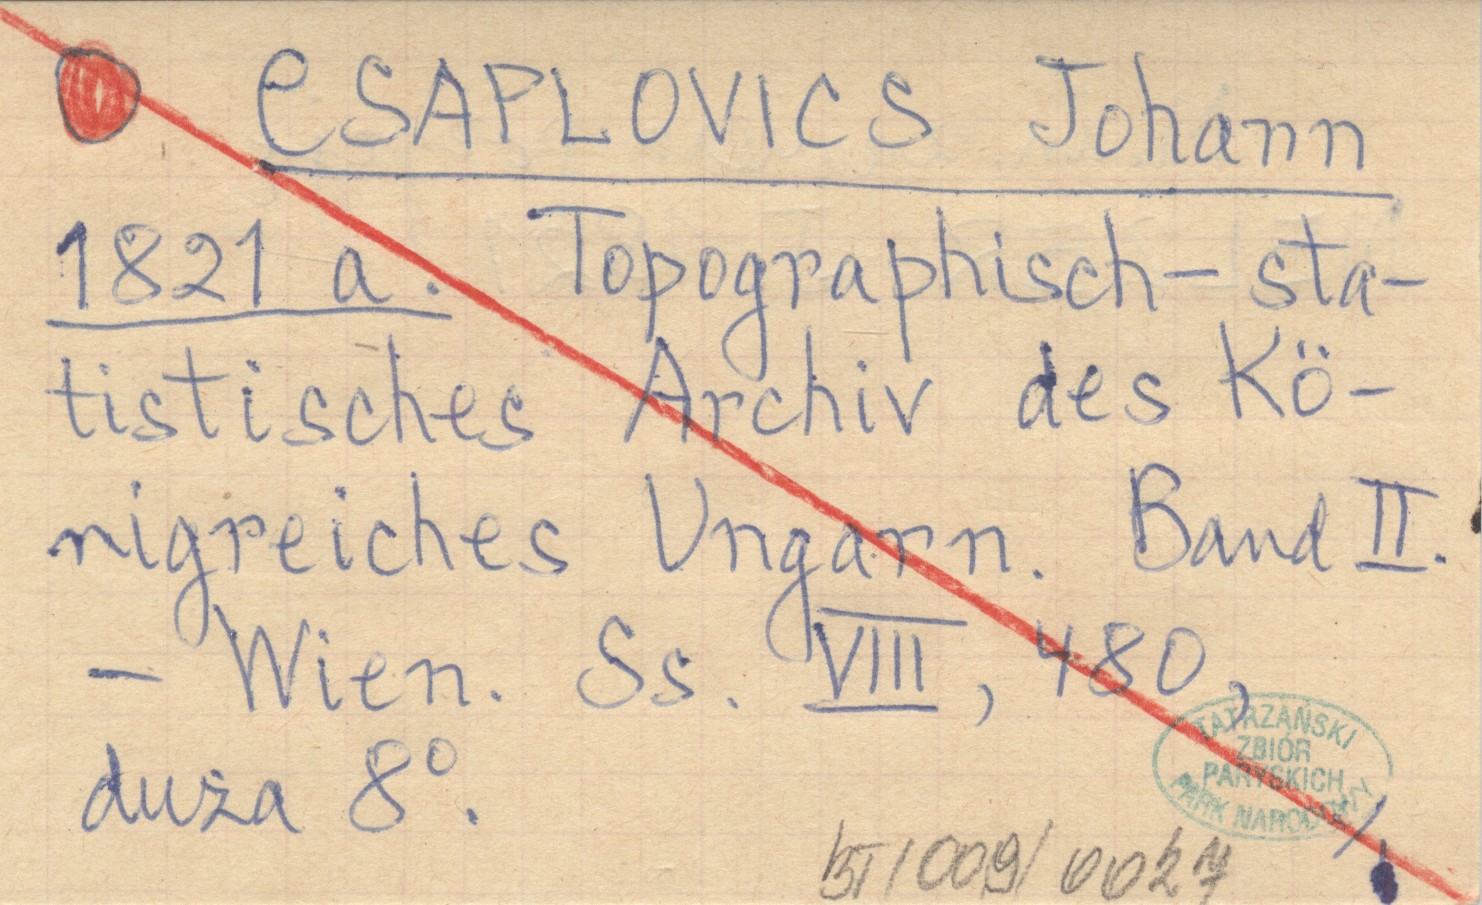 CSAPLOVICS Johann
1821 a. Topographisch-sta-
tistisches Archiv des Kö-
nigreiches Ungarn. Band II.
- Wien. Ss. VIII, 480,
duża 8°.
TATRZAŃSKI
ZBIÓR
PARYSKICH
PARK NARODOWY
BI/009/0027